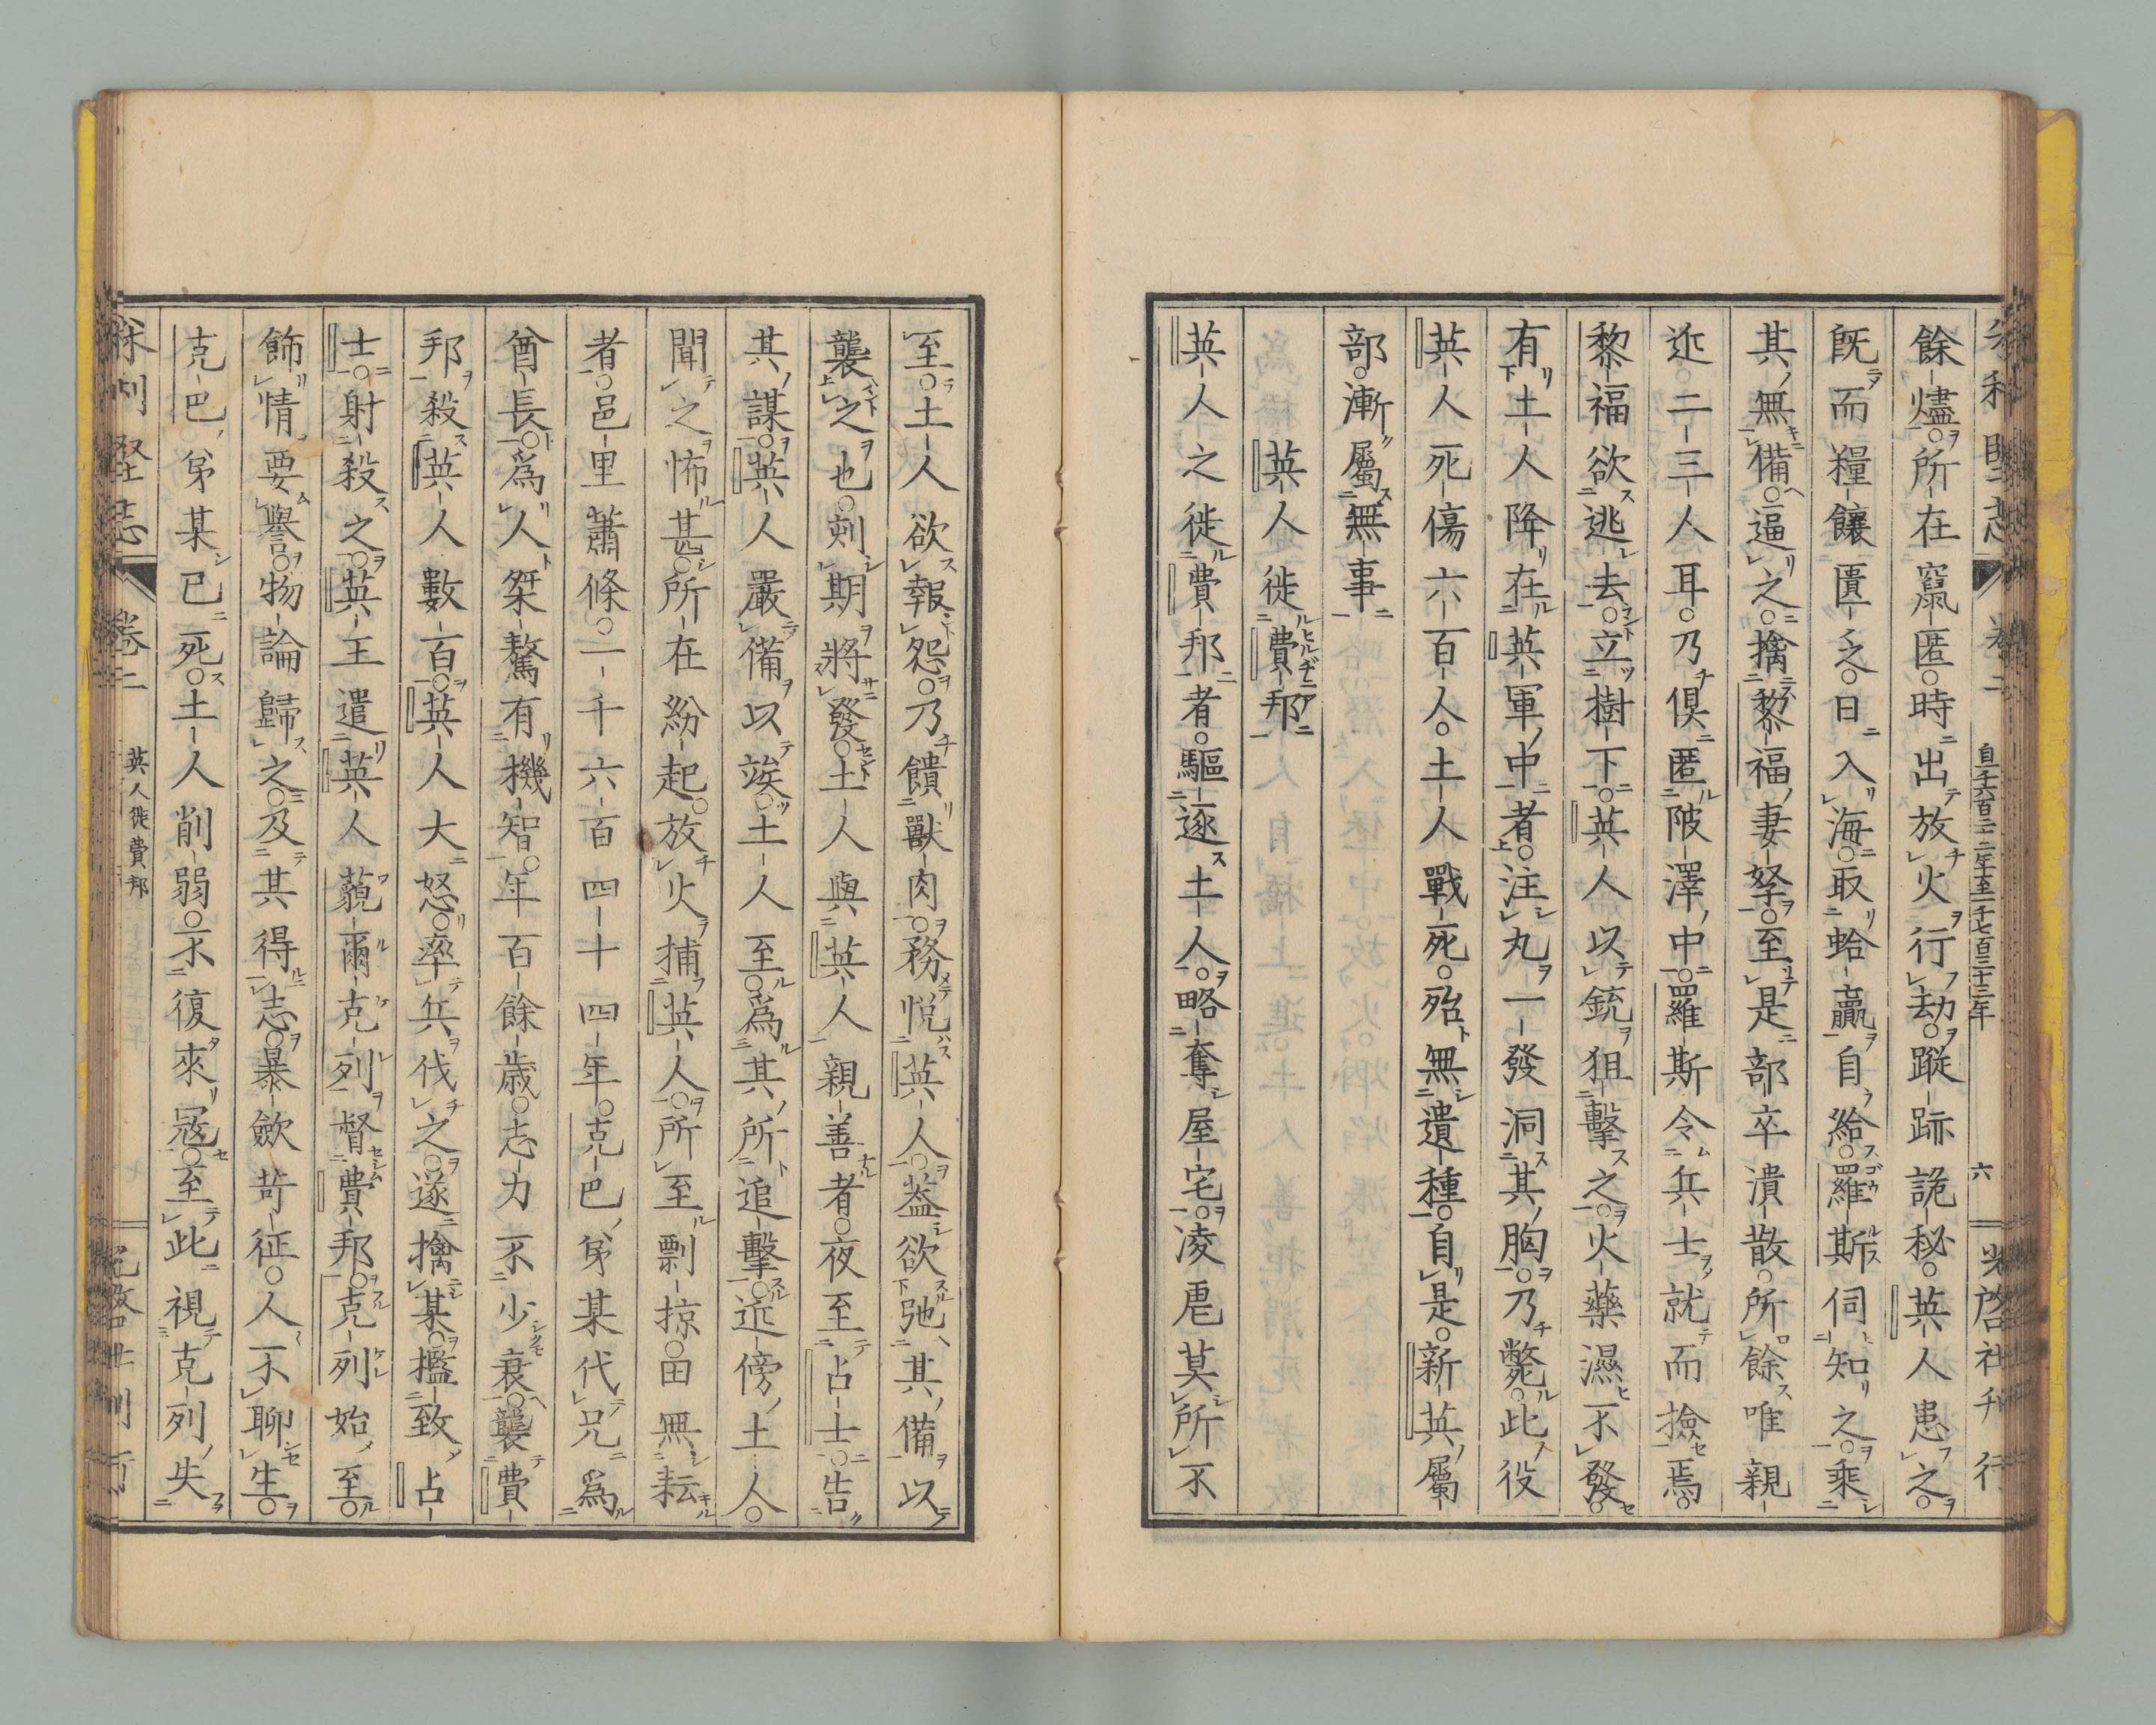 自千六百二十二年至一千七百三十三年
六
餘燼所在竄匿時出放火行劫蹤跡詭秘英人患之
既而糧饟匱乏日入海取蛤蠃自給羅斯伺知之乘
其無備逼之擒黎福妻孥至是部卒潰散所餘唯親
近二三人耳乃俱匿陂澤中羅斯令兵士就而撿焉
黎福欲逃去立樹下英人以銃狙擊之火藥濕不發
有土人降在英軍中者注丸一發洞其胸乃斃此役
英人死傷六百人土人戰死殆無遺種自是新英屬
部漸屬無事
英人徙費邦
英人之徙費邦者驅逐土人略奪屋宅凌虐莫所不
至土人欲報怨乃饋獸肉務悅英人蓋欲弛其備以
襲之也刻期將發土人與英人親善者夜至占士告
其謀英人嚴備以竢土人至爲其所追擊近傍土人
聞之怖甚所在紛起放火捕英人所至剽掠田無耘
者邑里蕭條一千六百四十四年克巴弟某代兄爲
酋長爲人桀驁有機智年百餘歲志力不少衰襲費
邦殺英人數百英人大怒率兵伐之遂擒某檻致占
士射殺之英王遣英人藐爾克列督費邦克列始至
飾情要譽物論歸之及其得志暴歛苛征人不聊生
克巴弟某已死土人削弱不復來寇至此視克列失
英人徙費邦